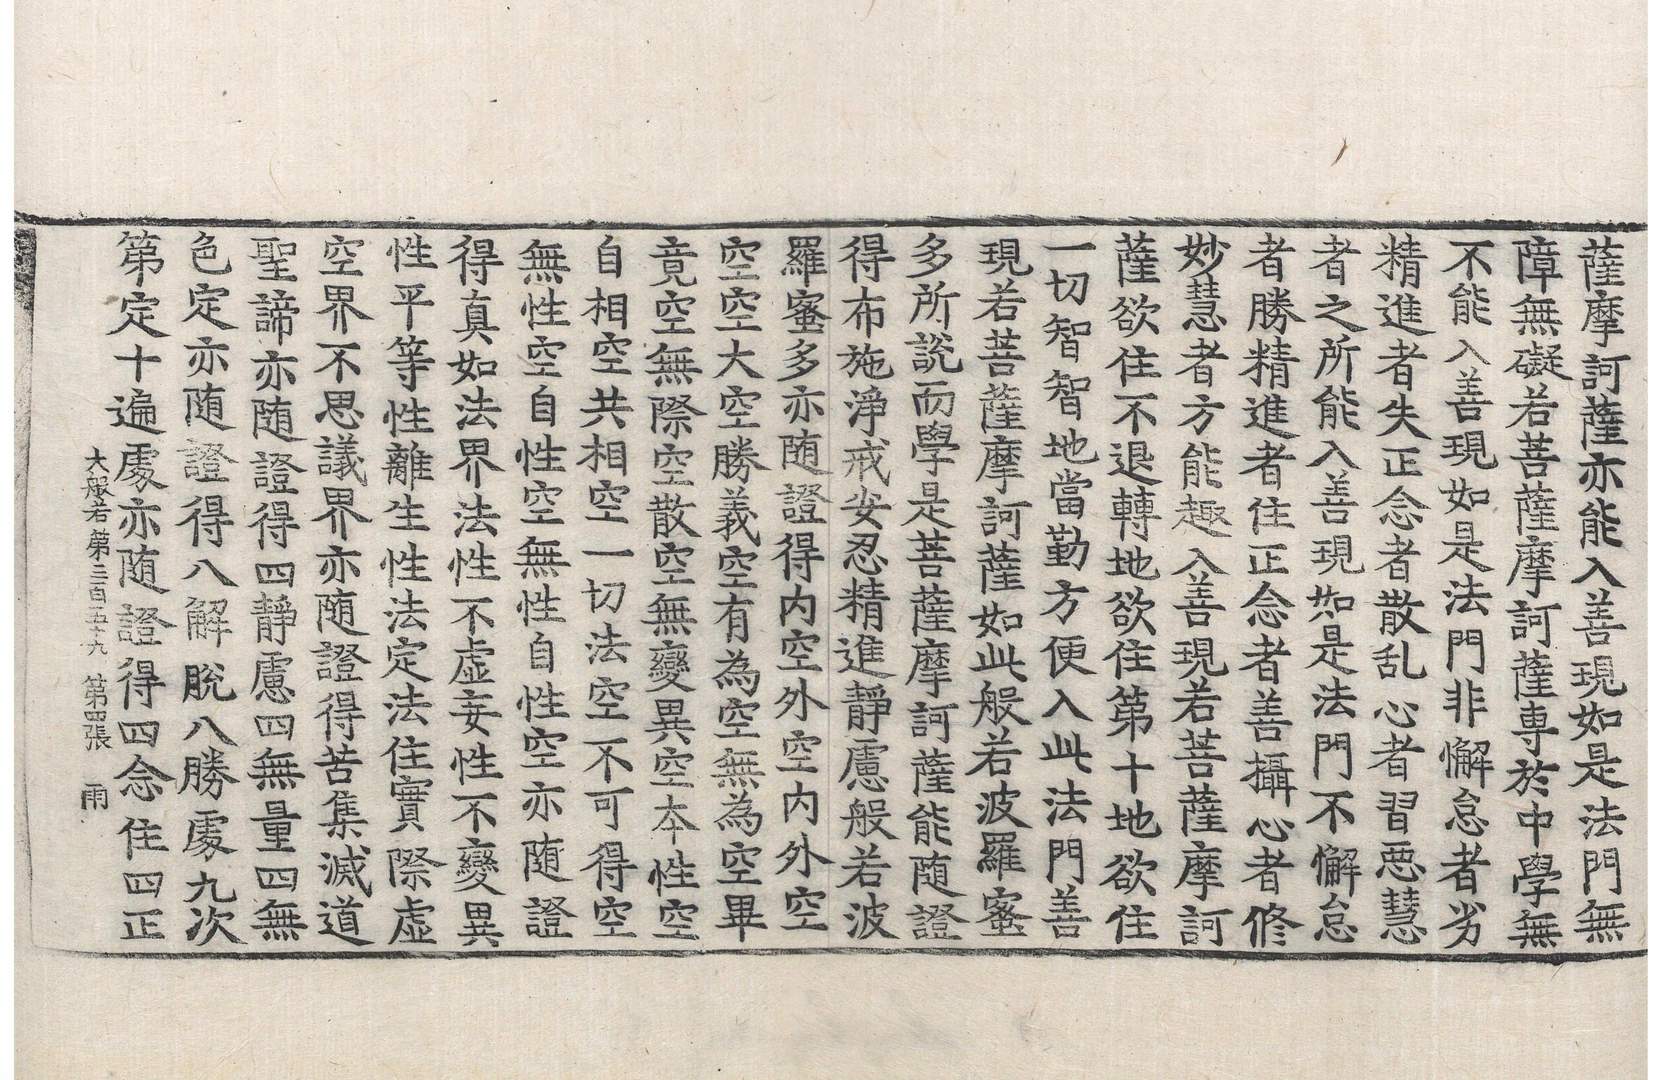 薩摩訶薩亦能入善現如是法門無
障無礙若菩薩摩訶薩專於中學無
不能入善現如是法門非懈怠者劣
精進者失正念者散乱心者習惡慧
者之所能入善現如是法門不懈怠
者勝精進者住正念者善攝心者修
妙慧者方能趣入善現若菩薩摩訶
薩欲住不退轉地欲住第十地欲住
一切智智地當勤方便入此法門善
現若菩薩摩訶薩如此般若波羅蜜
多所說而學是菩薩摩訶薩能隨證
得布施淨戒安忍精進靜慮般若波
羅蜜多亦随證得内空外空内外空
空空大空勝義空有為空無為空畢
竟空無際空散空無變異空本性空
自相空共相空一切法空不可得空
無性空自性空無性自性空亦随證
得真如法界法性不虛妄性不變異
性平等性離生性法定法住實際虛
空界不思議界亦随證得苦集滅道
聖諦亦随證得四靜慮四無量四無
色定亦随證得八解脫八勝處九次
第定十遍處亦随證得四念住四正
大般若第三百五十九 第四張 雨